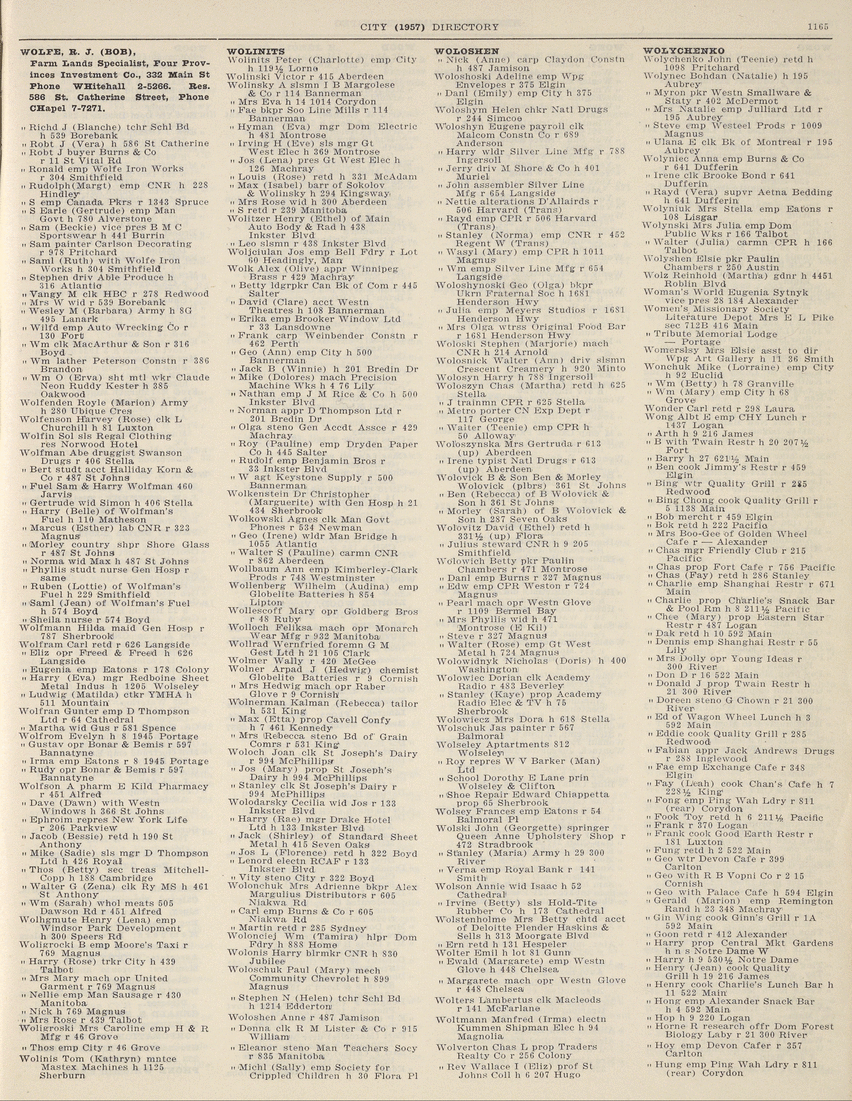 CITY (1957) DIRECTORY 1165
WOLFE, R. J. (BOB),
Farm Lands Specialist, Four Prov-
inces Investment Co., 332 Main St
Phone WHitehall 2-5266. Res.
586 St. Catherine Street, Phone
CHapel 7-7271.
" Richd J (Blanche) tchr Schl Bd
h 539 Borebank
" Robt J (Vera) h 586 St Catherine
" Robt J buyer Burns & Co
r 11 St Vital Rd
" Ronald emp Wolfe Iron Works
r 304 Smithfield
" Rudolph (Margt) emp CNR h 228
Hindley
" S emp Canada Pkrs r 1343 Spruce
" S Earle (Gertrude) emp Man
Govt h 780 Alverstone
" Sam (Beckie) vice pres B M C
Sportswear h 441 Burrin
" Sam painter Carlson Decorating
r 978 Pritchard
" Saml (Ruth) with Wolfe Iron
Works h 304 Smithfield
" Stephen driv Able Produce h
316 Atlantic
" Vangy M clk HBC r 278 Redwood
" Mrs W wid r 539 Borebank
" Wesley M (Barbara) Army h 8G
495 Lanark
" Wilfd emp Auto Wrecking Co r
130 Fort
" Wm clk MacArthur & Son r 316
Boyd
" Wm lather Peterson Constn r 386
Brandon
" Wm O (Erva) sht mtl wkr Claude
Neon Ruddy Kester h 385
Oakwood
Wolfenden Royle (Marion) Army
h 280 Ubique Cres
Wolfenson Harvey (Rose) clk L
Churchill h 81 Luxton
Wolfin Sol sls Regal Clothing
res Norwood Hotel
Wolfman Abe druggist Swanson
Drugs r 406 Stella
" Bert studt acct Halliday Korn &
Co r 487 St Johns
" Fuel Sam & Harry Wolfman 460
Jarvis
" Gertrude wid Simon h 406 Stella
" Harry (Belle) of Wolfman's
Fuel h 110 Matheson
" Marcus (Esther) lab CNR r 323
Magnus
" Morley country shpr Shore Glass
r 487 St Johns
" Norma wid Max h 487 St Johns
" Phyllis studt nurse Gen Hosp r
same
" Ruben (Lottie) of Wolfman's
Fuel h 229 Smithfield
" Saml (Jean) of Wolfman's Fuel
h 574 Boyd
" Sheila nurse r 574 Boyd
Wolfmann Hilda maid Gen Hosp r
787 Sherbrook
Wolfram Carl retd r 626 Langside
" Eliz opr Freed & Freed h 626
Langside
" Eugenia emp Eatons r 178 Colony
" Harry (Eva) mgr Redboine Sheet
Metal Indus h 1205 Wolseley
" Ludwig (Matilda) ctkr YMHA h
511 Mountain
Wolfran Gunter emp D Thompson
Ltd r 64 Cathedral
" Martha wid Gus r 581 Spence
Wolfrom Evelyn h 8 1945 Portage
" Gustav opr Bonar & Bemis r 597
Bannatyne
" Irma emp Eatons r 8 1945 Portage
" Rudy opr Bonar & Bemis r 597
Bannatyne
Wolfson A pharm E Kild Pharmacy
r 451 Alfred
" Dave (Dawn) with Westn
Windows h 366 St Johns
" Ephroim repres New York Life
r 206 Parkview
" Jacob (Bessie) retd h 190 St
Anthony
" Mike (Sadie) sls mgr D Thompson
Ltd h 426 Royal
" Thos (Betty) sec treas Mitchell-
Copp h 188 Cambridge
" Walter G (Zena) clk Ry MS h 461
St Anthony
" Wm (Sarah) whol meats 505
Dawson Rd r 451 Alfred
Wolhgmute Henry (Lena) emp
Windsor Park Development
h 300 Speers Rd
Woligrocki B emp Moore's Taxi r
769 Magnus
" Harry (Rose) trkr City h 439
Talbot
" Mrs Mary mach opr United
Garment r 769 Magnus
" Nellie emp Man Sausage r 430
Manitoba
" Nick h 769 Magnus
" Mrs Rose r 439 Talbot
Woligroski Mrs Caroline emp H & R
Mfg r 46 Grove
" Thos emp City r 46 Grove
Wolinis Tom (Kathryn) mntce
Mastex Machines h 1125
Sherburn
WOLINITS
Wolinits Peter (Charlotte) emp City
h 119½ Lorne
Wolinski Victor r 415 Aberdeen
Wolinsky A slsmn I B Margolese
& Co r 114 Bannerman
" Mrs Eva h 14 1014 Corydon
" Fae bkpr Soo Line Mills r 114
Bannerman
" Hyman (Eva) mgr Dom Electric
h 481 Montrose
" Irving H (Eve) sls mgr Gt
West Elec h 369 Montrose
" Jos (Lena) pres Gt West Elec h
126 Machray
" Louis (Rose) retd h 331 McAdam
" Max (Isabel) barr of Sokolov
& Wolinsky h 294 Kingsway
" Mrs Rose wid h 300 Aberdeen
" S retd r 239 Manitoba
Wolitzer Henry (Ethel) of Main
Auto Body & Rad h 438
Inkster Blvd
" Leo slsmn r 438 Inkster Blvd
Woljciulan Jos emp Bell Fdry r Lot
60 Headingly, Man
Wolk Alex (Olive) appr Winnipeg
Brass r 429 Machray
" Betty ldgrpkr Can Bk of Com r 445
Salter
" David (Clare) acct Westn
Theatres h 108 Bannerman
" Erika emp Brooker Window Ltd
r 33 Lansdowne
" Frank carp Weinbender Constn r
462 Perth
" Geo (Ann) emp City h 500
Bannerman
" Jack B (Winnie) h 201 Bredin Dr
" Mike (Dolores) mach Precision
Machine Wks h 4 76 Lily
" Nathan emp J M Rice & Co h 500
Inkster Blvd
" Norman appr D Thompson Ltd r
201 Bredin Dr
" Olga steno Gen Accdt Assce r 429
Machray
" Roy (Pauline) emp Dryden Paper
Co h 445 Salter
" Rudolf emp Benjamin Bros r
33 Inkster Blvd
" W sgt Keystone Supply r 500
Bannerman
Wolkenstein Dr Christopher
(Marguerite) with Gen Hosp h 21
434 Sherbrook
Wolkowski Agnes clk Man Govt
Phones r 534 Newman
" Geo (Irene) wldr Man Bridge h
1055 Atlantic
" Walter S (Pauline) carmn CNR
r 862 Aberdeen
Wollbaum Ann emp Kimberly-Clark
Prods r 748 Westminster
Wollenberg Wilhelm (Audina) emp
Globelite Batteries h 854
Lipton
Wollescoff Mary opr Goldberg Bros
r 48 Ruby
Wolloch Feliksa mach opr Monarch
Wear Mfg r 932 Manitoba
Wollrad Wernfried foremn G M
Gest Ltd h 21 105 Clark
Wolmer Wally r 420 McGee
Wolner Arpad J (Hedwig) chemist
Globelite Batteries r 9 Cornish
" Mrs Hedwig mach opr Raber
Glove r 9 Cornish
Wolnerman Kalman (Rebecca) tailor
h 531 King
" Max (Etta) prop Cavell Confy
h 7 461 Kennedy
" Mrs Rebecca steno Bd of Grain
Comrs r 531 King
Woloch Joan clk St Joseph's Dairy
r 994 McPhillips
" Jos (Mary) prop St Joseph's
Dairy h 994 McPhillips
" Stanley clk St Joseph's Dairy r
994 McPhillips
Wolodarsky Cecilia wid Jos r 133
Inkster Blvd
" Harry (Rae) mgr Drake Hotel
Ltd h 133 Inkster Blvd
" Jos (Sharley) of Standard Sheet
Metal h 415 Seven Oaks
" Jos L (Florence) retd h 322 Boyd
" Lenord electn RCAF r 133
Inkster Blvd
" Vity steno City r 322 Boyd
Wolonchuk Mrs Adrienne bkpr Alex
Margulius Distributors r 605
Niakwa Rd
" Carl emp Burns & Co r 605
Niakwa Rd
" Martin retd r 285 Sydney
Wolonciej Wm (Tamira) hlpr Dom
Fdry h 888 Home
Wolonis Harry blrmkr CNR h 830
Jubilee
Woloschuk Paul (Mary) mech
Community Chevrolet h 899
Magnus
" Stephen N (Helen) tchr Schl Bd
h 1214 Edderton
Woloshen Anne r 487 Jamison
" Donna clk R M Lister & Co r 915
William
" Eleanor steno Man Teachers Socy
r 835 Manitoba
" Michl (Sally) emp Society for
Crippled Children h 30 Flora Pl
WOLOSHEN
" Nick (Anne) carp Claydon Constn
h 487 Jamison
Woloshoski Adeline emp Wpg
Envelopes r 375 Elgin
" Danl (Emily) emp City h 375
Elgin
Woloshym Helen chkr Natl Drugs
r 244 Simcoe
Woloshyn Eugene payroll clk
Malcom Constn Co r 689
Anderson
" Harry wldr Silver Line Mfg r 788
Ingersoll
" Jerry driv M Shore & Co h 401
Muriel
" John assembler Silver Line
Mfg r 654 Langside
" Nettie alterations D'Allairds r
506 Harvard (Trans)
" Rayd emp CPR r 506 Harvard
(Trans)
" Stanley (Norma) emp CNR r 452
Regent W (Trans)
" Wasyl (Mary) emp CPR h 1011
Magnus
" Wm emp Silver Line Mfg r 654
Langside
Woloshynoski Geo (Olga) bkpr
Ukrn Fraternal Soc h 1681
Henderson Hwy
" Julia emp Meyers Studios r 1681
Henderson Hwy
" Mrs Olga wtrss Original Food Bar
r 1681 Henderson Hwy
Woloski Stephen (Marjorie) mach
CNR h 214 Arnold
Wolosnick Walter (Ann) driv slsmn
Crescent Creamery h 920 Minto
Wolosyn Harry h 788 Ingersoll
Woloszyn Chas (Martha) retd h 625
Stella
" J trainmn CPR r 625 Stella
" Metro porter CN Exp Dept r
117 George
" Walter (Teenie) emp CPR h
50 Alloway
Woloszynska Mrs Gertruda r 613
(up) Aberdeen
" Irene typist Natl Drugs r 613
(up) Aberdeen
Wolovick B & Son Ben & Morley
Wolovick (plbrs) 361 St Johns
" Ben (Rebecca) of B Wolovick &
Son h 361 St Johns
" Morley (Sarah) of B Wolovick &
Son h 287 Seven Oaks
Wolovitz David (Ethel) retd h
331½ (up) Flora
" Julius steward CNR h 9 205
Smithfield
Wolowich Betty pkr Paulin
Chambers r 471 Montrose
" Danl emp Burns r 327 Magnus
" Edw emp CPR Weston r 724
Magnus
" Pearl mach opr Westn Glove
r 1109 Bermel Bay
" Mrs Phyllis wid h 471
Montrose (E Kil)
" Steve r 327 Magnus
" Walter (Rose) emp Gt West
Metal h 724 Magnus
Wolowidnyk Nicholas (Doris) h 400
Washington
Wolowiec Dorian clk Academy
Radio r 483 Beverley
" Stanley (Kaye) prop Academy
Radio Elec & TV h 75
Sherbrook
Wolowiecz Mrs Dora h 618 Stella
Wolschuk Jas painter r 567
Balmoral
Wolseley Aptartments 812
Wolseley
" Roy repres W V Barker (Man)
Ltd
" School Dorothy E Lane prin
Wolseley & Clifton
" Shoe Repair Edward Chiappetta
prop 65 Sherbrook
Wolsey Frances emp Eatons r 54
Balmoral Pl
Wolski John (Georgette) springer
Queen Anne Upholstery Shop r
472 Stradbrook
" Stanley (Maria) Army h 29 300
River
" Verna emp Royal Bank r 141
Smith
Wolson Annie wid Isaac h 52
Cathedral
" Irvine (Betty) sls Hold-Tite
Rubber Co h 173 Cathedral
Wolstenholme Mrs Betty chtd acct
of Deloitte Plender Haskins &
Sells h 313 Moorgate Blvd
" Ern retd h 131 Hespeler
Wolter Emil h lot 81 Gunn
" Ewald (Margarete) emp Westn
Glove h 448 Chelsea
" Margarete mach opr Westn Glove
r 448 Chelsea
Wolters Lambertus clk Macleods
r 141 McFarlane
Woltmann Manfred (Irma) electn
Kummen Shipman Elec h 94
Magnolia
Wolverton Chas L prop Traders
Realty Co r 256 Colony
" Rev Wallace I (Eliz) prof St
Johns Coll h 6 207 Hugo
WOLYCHENKO
Wolychenko John (Teenie) retd h
1098 Pritchard
Wolynec Bohdan (Natalie) h 195
Aubrey
" Myron pkr Westn Smallware &
Staty r 402 McDermot
" Mrs Natalie emp Julliard Ltd r
195 Aubrey
" Steve emp Westeel Prods r 1009
Magnus
" Ulana E clk Bk of Montreal r 195
Aubrey
Wolyniec Anna emp Burns & Co
r 641 Dufferin
" Irene clk Brooke Bond r 641
Dufferin
" Rayd (Vera) supvr Aetna Bedding
h 641 Dufferin
Wolyniuk Mrs Stella emp Eatons r
108 Lisgar
Wolynski Mrs Julia emp Dom
Public Wks r 166 Talbot
" Walter (Julia) carmn CPR h 166
Talbot
Wolyshen Elsie pkr Paulin
Chambers r 250 Austin
Wolz Reinhold (Martha) gdnr h 4451
Roblin Blvd
Woman's World Eugenia Sytnyk
vice pres 28 184 Alexander
Women's Missionary Society
Literature Depot Mrs E L Pike
sec 712B 416 Main
" Tribute Memorial Lodge
— Portage
Womersley Mrs Elsie asst to dir
Wpg Art Gallery h 11 36 Smith
Wonchuk Mike (Lorraine) emp City
h 92 Euclid
" Wm (Betty) h 78 Granville
" Wm (Mary) emp City h 68
Grove
Wonder Carl retd r 298 Laura
Wong Albt E emp CHY Lunch r
1437 Logan
" Arth h 9 216 James
" B with Twain Restr h 20 207½
Fort
" Barry h 27 621½ Main
" Ben cook Jimmy's Restr r 459
Elgin
" Bing wtr Quality Grill r 285
Redwood
" Bing Chong cook Quality Grill r
5 1138 Main
" Bob mercht r 459 Elgin
" Bok retd h 222 Pacific
" Mrs Boo-Gee of Golden Wheel
Cafe r — Alexander
" Chas mgr Friendly Club r 215
Pacific
" Chas prop Fort Cafe r 756 Pacific
" Chas (Fay) retd h 286 Stanley
" Charlie emp Shanghai Restr r 671
Main
" Charlie prop Charlie's Snack Bar
& Pool Rm h 8 211½ Pacific
" Chee (Mary) prop Eastern Star
Restr r 487 Logan
" Dak retd h 10 592 Main
" Dennis emp Shanghai Restr r 55
Lily
" Mrs Dolly opr Young Ideas r
300 River
" Don D r 16 522 Main
" Donald J prop Twain Restr h
21 300 River
" Doreen steno G Chown r 21 300
River
" Ed of Wagon Wheel Lunch h 3
592 Main
" Eddie cook Quality Grill r 285
Redwood
" Fabian appr Jack Andrews Drugs
r 288 Inglewood
" Fae emp Exchange Cafe r 348
Elgin
" Fay (Leah) cook Chan's Cafe h 7
228½ King
" Fong emp Ping Wah Ldry r 811
(rear) Corydon
" Fook Toy retd h 6 211½ Pacific
" Frank r 370 Logan
" Frank cook Good Earth Restr r
181 Luxton
" Fung retd h 2 522 Main
" Geo wtr Devon Cafe r 399
Carlton
" Geo with R B Vopni Co r 2 15
Cornish
" Geo with Palace Cafe h 594 Elgin
" Gerald (Marion) emp Remington
Rand h 23 348 Machray
" Gin Wing cook Ginn's Grill r 1A
592 Main
" Goon retd r 412 Alexander
" Harry prop Central Mkt Gardens
h n s Notre Dame W
" Harry h 9 530½ Notre Dame
" Henry (Jean) cook Quality
Grill h 19 216 James
" Henry cook Charlie's Lunch Bar h
11 522 Main
" Hong emp Alexander Snack Bar
h 4 592 Main
" Hop h 9 220 Logan
" Horne R research offr Dom Forest
Biology Laby r 21 300 River
" Hoy emp Devon Cafer r 357
Carlton
" Hung emp Ping Wah Ldry r 811
(rear) Corydon